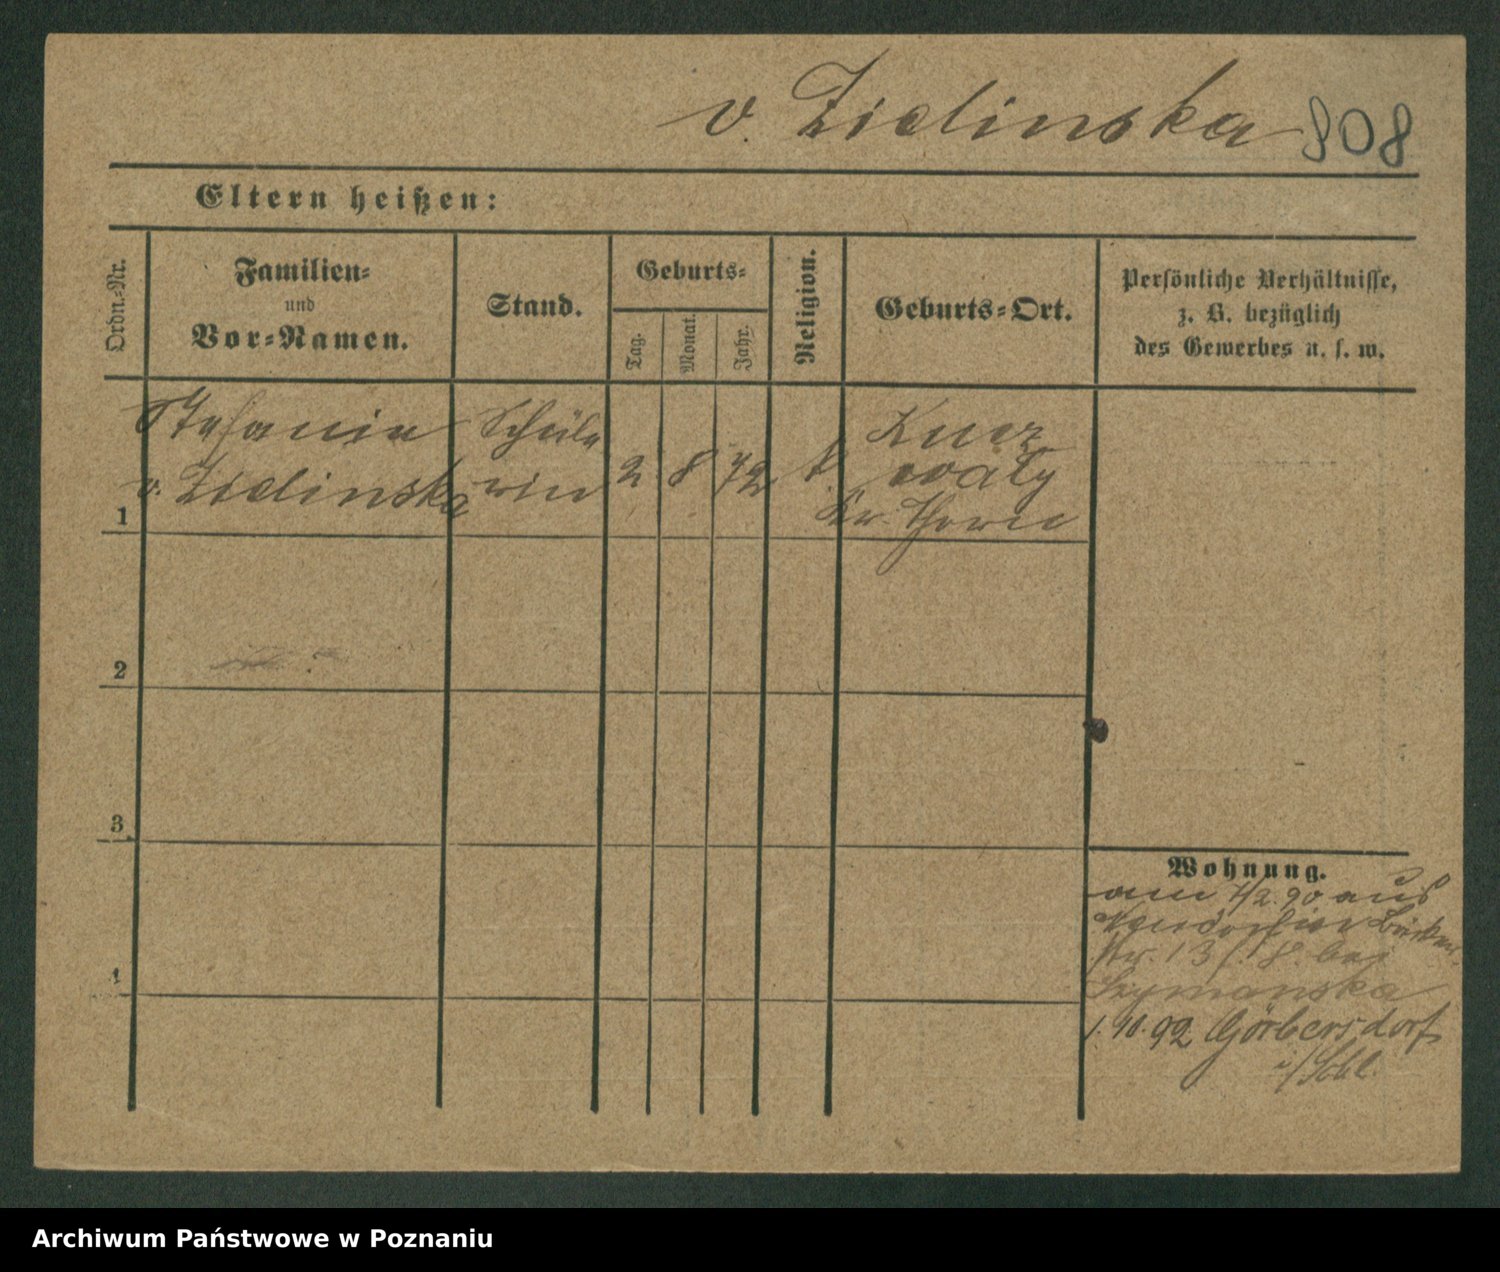 v. Zielinska 808
Eltern heißen:
Ordn.-Nr.
Familien-
und
Vor-Namen.
Stand.
Geburts-
Tag.
Monat.
Jahr.
Religion.
Geburts-Ort.
Persönliche Verhältnisse,
z. B. bezüglich
des Gewerbes u. s. w.
Stefanie
v. Zielinska
Schüle
rin
2 8 72 k.
Kucz
waly
Kr. Thorn
1
2
3
4
Wohnung.
am 1/2. 90 aus
Bäcker
str. 13 bei
Szymanska
1. 10. 92 Görbersdorf
i/Schl.
Archiwum Państwowe w Poznaniu